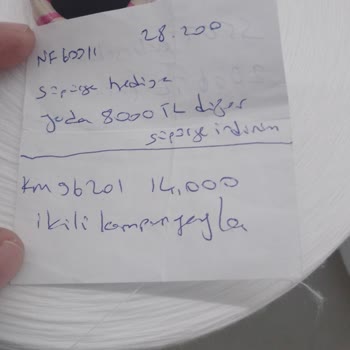 28.200
NF60J11
süpürge hediye
yada 8000 TL diğer
süpürge indirim
KM36201 14,000
ikili kampanyayla